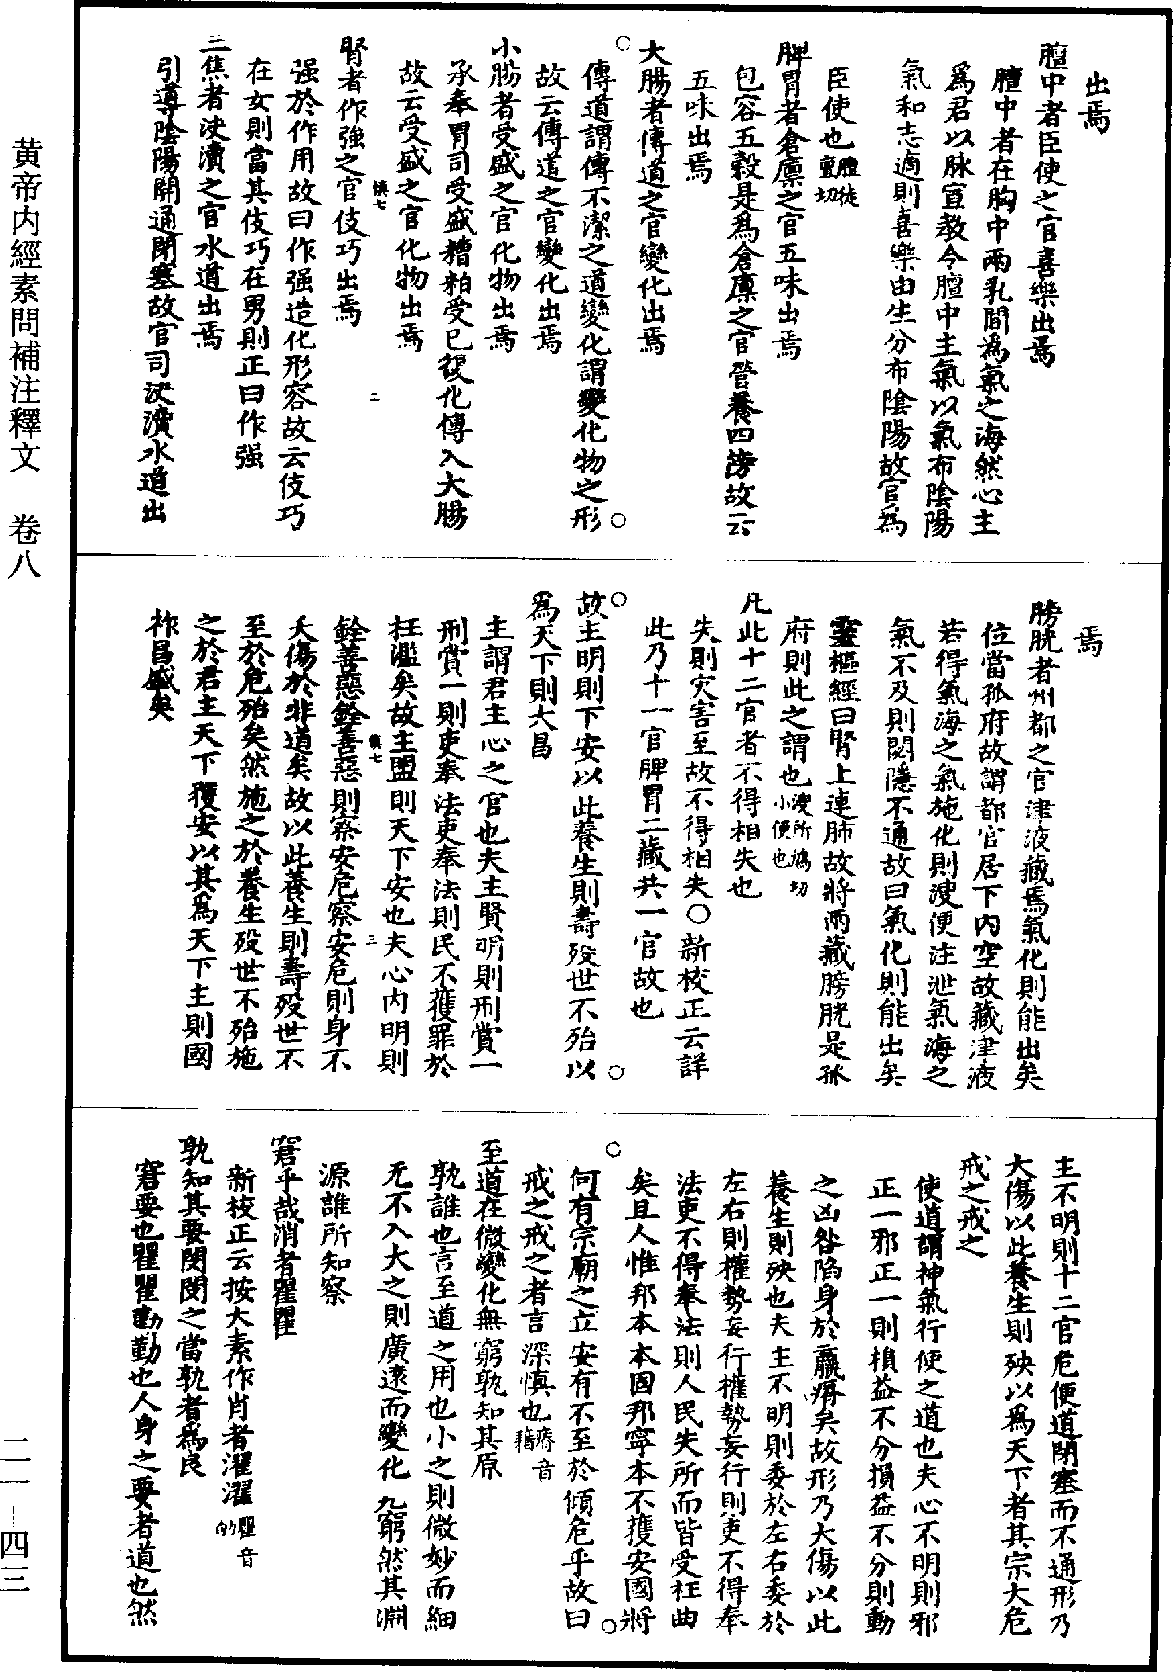 出焉
膻中者臣使之官喜樂出焉
膻中者在胸中兩乳間為氣之海然心主
為君以脉宣教令膻中主氣以氣布陰陽
氣和志適則喜樂由生分布陰陽故官為
臣使也膻徒亶切
脾胃者倉廪之官五味出焉
包容五穀是為倉廪之官營養四傍故云
五味出焉
大腸者傳道之官變化出焉
傳道謂傳不潔之道變化謂變化物之形
故云傳道之官變化出焉
小腸者受盛之官化物出焉
承奉胃司受盛糟粕受已復化傳入大腸
故云受盛之官化物出焉
腎者作強之官伎巧出焉
强於作用故曰作强造化形容故云伎巧
在女則當其伎巧在男則正曰作强
三焦者決瀆之官水道出焉
引導陰陽開通閉塞故官司決瀆水道出
慎七
二
焉
膀胱者州都之官津液藏焉氣化則能出矣
位當孤府故謂都官居下内空故藏津液
若得氣海之氣施化則溲便注泄氣海之
氣不及則閟隱不通故曰氣化則能出矣
靈樞經曰腎上連肺故將兩藏膀胱是孤
府則此之謂也溲所鳩切小便也
凡此十二官者不得相失也
失則灾害至故不得相失○新校正云詳
此乃十一官脾胃二藏共一官故也
故主明則下安以此養生則壽殁世不殆以
為天下則大昌
主謂君主心之官也夫主賢明則刑賞一
刑賞一則吏奉法吏奉法則民不獲罪於
枉濫矣故主盟則天下安也夫心内明則
銓善惡銓善惡則察安危察安危則身不
夭傷於非道矣故以此養生則壽殁世不
至於危殆矣然施之於養生殁世不殆施
之於君主天下獲安以其為天下主則國
祚昌盛矣
慎七
三
主不明則十二官危使道閉塞而不通形乃
大傷以此養生則殃以為天下者其宗大危
戒之戒之
使道謂神氣行使之道也夫心不明則邪
正一邪正一則損益不分損益不分則動
之凶咎陷身於羸瘠矣故形乃大傷以此
養生則殃也夫主不明則委於左右委於
左右則權勢妄行權勢妄行則吏不得奉
法吏不得奉法則人民失所而皆受枉曲
矣且人惟邦本本固邦寧本不獲安國將
何有宗廟之立安有不至於傾危乎故曰
戒之戒之者言深慎也瘠音藉
至道在微變化無窮孰知其原
孰誰也言至道之用也小之則微妙而細
无不入大之則廣遠而變化无窮然其淵
源誰所知察
窘乎哉消者瞿瞿
新校正云按大素作肖者濯濯瞿音的
孰知其要閔閔之當孰者為良
窘要也瞿瞿勤勤也人身之要者道也然
黄帝内經素問補注釋文　卷八
二一－四三